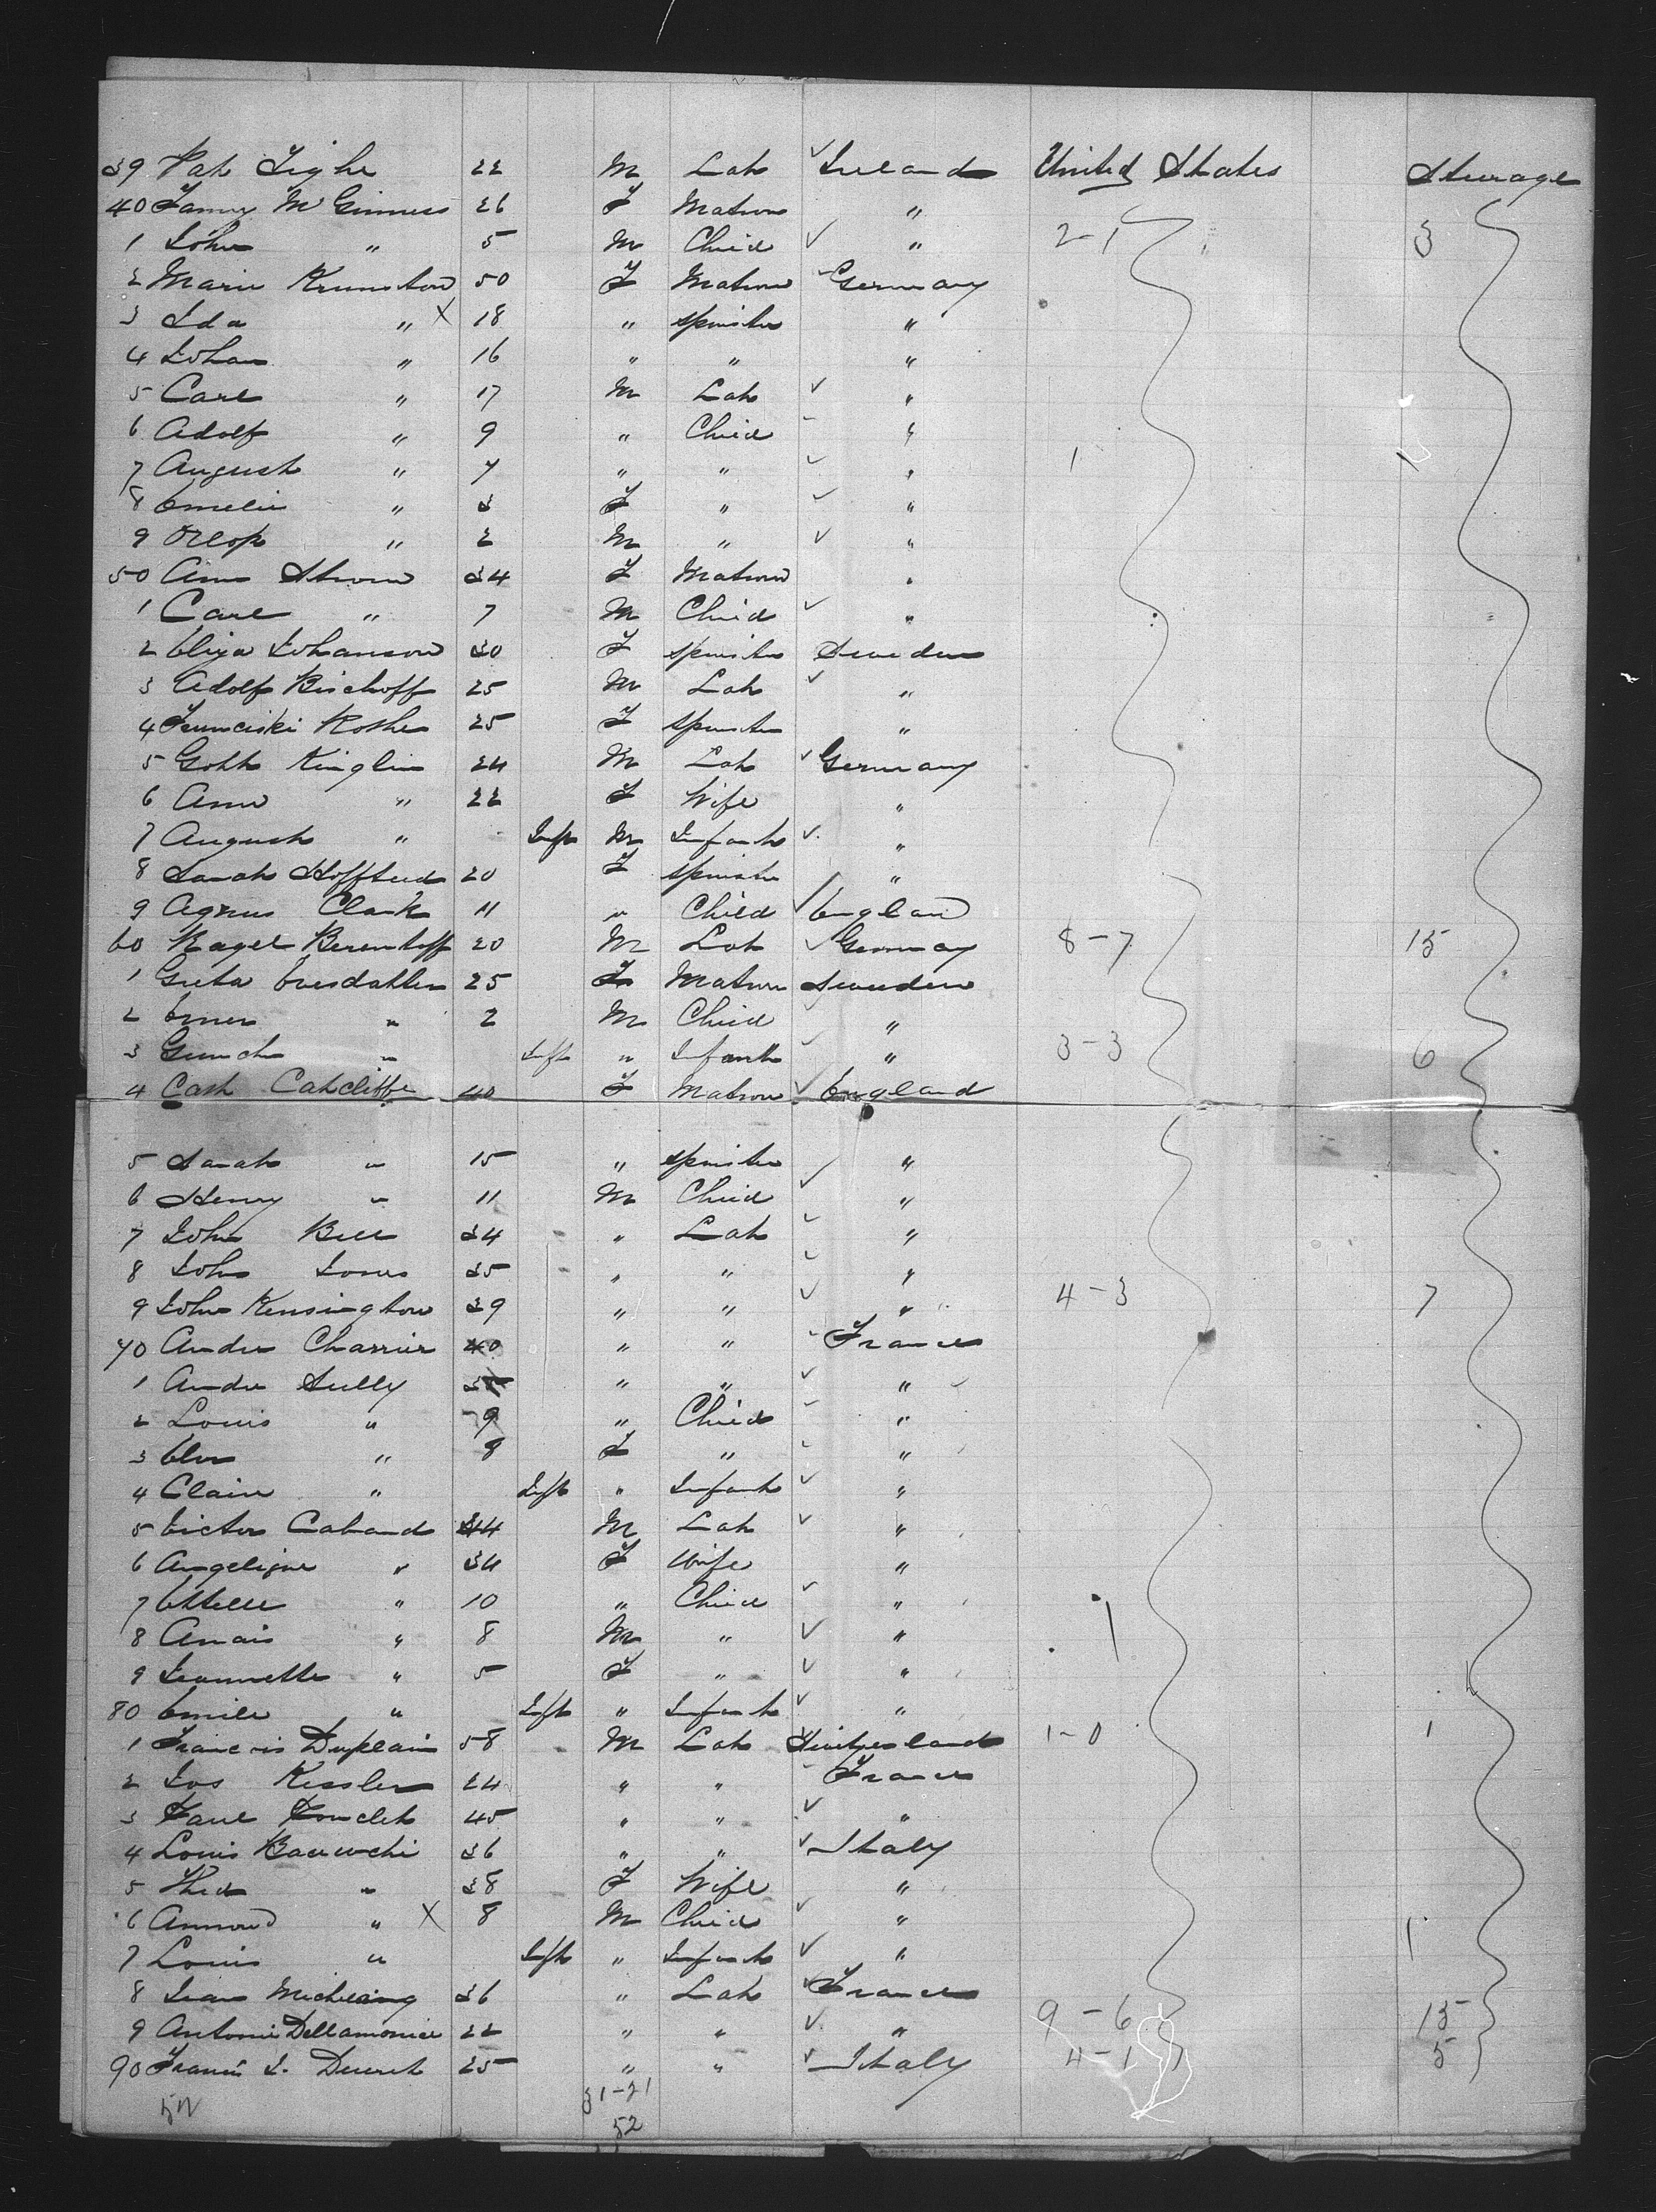 39 Pat Tighe 22 M Lab ✓ Ireland United States Steerage
40 Fanny McGinness 26 F Matron "
1 John " 5 M Child ✓ " 2-1 3
2 Marie Krumston 50 F Matron Germany
3 Ida " X 18 " Spinster "
4 Johan " 16 " " "
5 Carl " 17 M Lab ✓ "
6 Adolf " 9 " Child "
7 August " 7 " " ✓ " 1
8 Emelie " 3 F " ✓ "
9 " 2 M " ✓ "
50 Ann Strom 34 F Matron "
1 Carl " 7 M Child ✓ "
2 Johanson 30 F Spinster Sweden
3 Adolf Bischoff 25 M Lab ✓ "
4 Kothe 25 F Spinster "
5 Gotth Kinglin 24 M Lab ✓ Germany
6 Ann " 22 F Wife "
7 August " Inft M Infant ✓ "
8 Sarah 20 F Spinster "
9 Agnes Clark 11 " Child ✓ England
60 20 M Lab ✓ Germany 8-7 15
1 Greta 25 F Matron Sweden
2 " 2 M Child "
3 " Inft " Infant " 3-3 6
4 Cath Catcliffe 40 F Matron ✓ England
5 Sarah " 15 " Spinster "
6 Henry " 11 M Child ✓ "
7 John Bell 34 " Lab "
8 John Jones 35 " " "
9 John Kensington 39 " " ✓ " 4-3 7
70 Andre Charrier 40 " " France
1 Andre Sully " " ✓ "
2 Louis " 9 " Child "
3 " 8 F " "
4 Claire " Inft " Infant ✓ "
5 Victor Caband 44 M Lab ✓ "
6 Angelique " 34 F Wife "
7 " 10 " Child ✓ "
8 Anais " 8 M " ✓ "
9 Jeannette " 5 F " ✓ "
80 Emile " Inft " Infant ✓ "
1 Francis Duplain 58 M Lab ✓ Switzerland 1-0 1
2 Jos Kessler 24 " " France
3 Paul 45 " " ✓ "
4 Louis 36 " " ✓ Italy
5 " 38 F Wife "
6 " X 8 M Child ✓ " 1
7 Louis " Inft " Infant ✓ "
8 Jean 36 " Lab ✓ France
9 Antonie Dellamonica 22 " " ✓ " 9-6 15
90 25 " " ✓ Italy 4-1 5
31-21
52